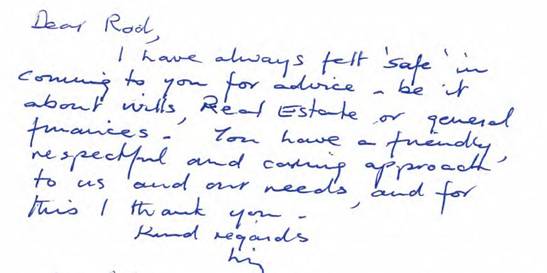 Dear Rod,
I have always felt 'safe' in
coming to you for advice - be it
about wills, Real Estate or general
finances - You have a friendly,
respectful and caring approach
to us and our needs, and for
this I thank you -
Kind regards
Liz